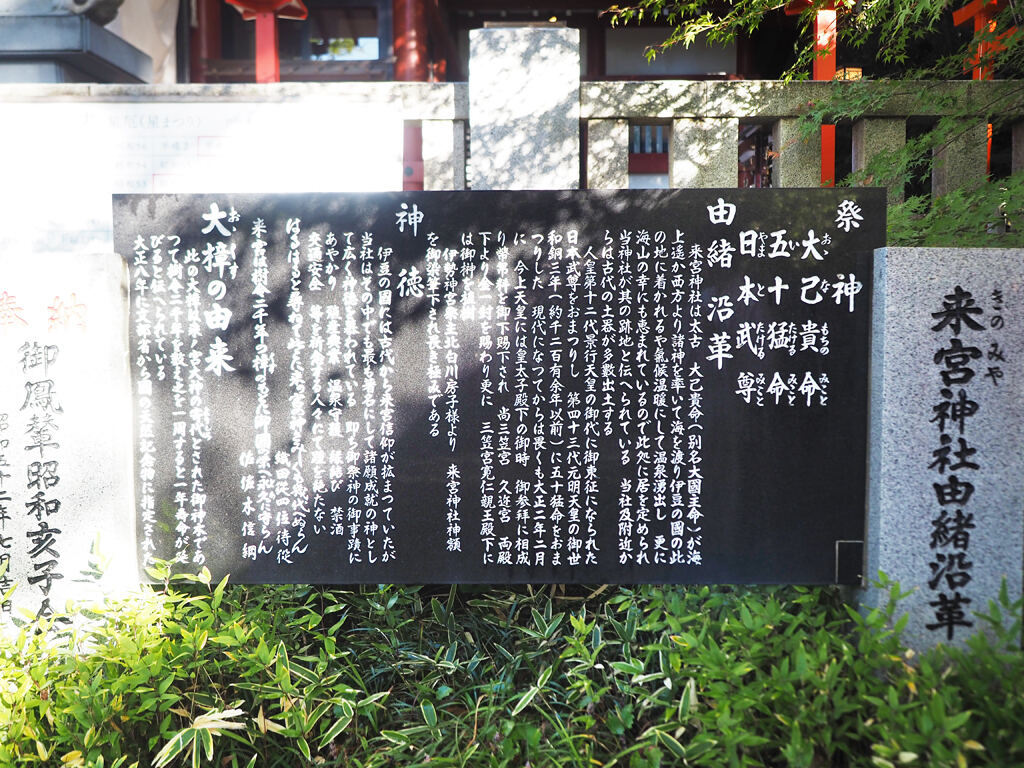 来宮神社由緒沿革
きのみや
祭神
大己貴命
おおなもちのみこと
五十猛命
いたけるみこと
日本武尊
やまとたけるみこと
由緒沿革
来宮神社は太古 大己貴命(別名大國主命)が海
上遥か西方より諸神を率いて海を渡り伊豆の國の此
の地に着かれるや氣候温暖にして温泉湧出し 更に
海山の幸にも恵まれているので此処に居を定められ
当神社が其の跡地と伝へられている 当社及附近か
らは古代の土器が多数出土する
人皇第十二代景行天皇の御代に御東征になられた
日本武尊をおまつりし 第四十三代元明天皇の御世
和銅三年(約千二百有余年以前)に五十猛命をおま
つりした 現代になつてからは畏くも大正二年二月
に 今上天皇には皇太子殿下の御時 御参拝に相成
り幣帛料を御下賜下され 尚三笠宮 久迩宮 両殿
下より金一封を賜わり更に 三笠宮寛仁親王殿下に
は御神を植樹
伊勢神宮祭主北白川房子様より 来宮神社神額
を御染筆下され長さ極みである
神徳
伊豆の國には古代から来宮信仰が拡まつていたが
当社はその中でも最も著名にして諸願成就の神とし
て広く神徳を慕われている 即ち御祭神の御事蹟に
あやかり 温泉守護 縁結び 禁酒
交通安全 等を祈念する人々にて踵を絶たない
はるばると尋ね
佐佐木信綱
大樟の由来
おおくす
此の大樟は来ノ宮大神の
つて樹令二千年を数え之を一周すると一年寿命が延
びると伝へられている
大正八年に文部省から
奉納
御鳳輦昭和亥子会